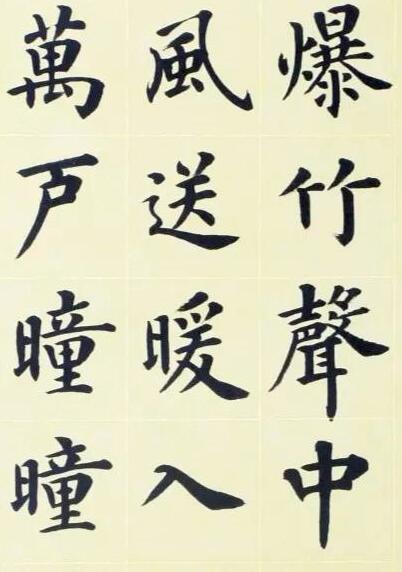 爆竹聲中
風送暖入
萬户曈曈